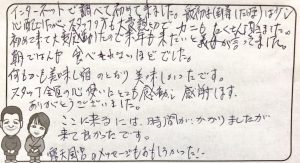 インターネットで調べて初めて来ました。最初は(到着した時は)少し
心配でしたが、スタッフの方も大変
初めて来て大変感動したので来年も来たいと義母が言ってました。
朝ごはんが食べきれないほどでした。
何もかも美味し宿のとおり美味しかったです。
スタッフ全員の心使いにとても感動し感謝します。
ありがとうございました。
ここに来るには、時間がかかりましたが
来て良かったです。
露天風呂のメッセージもおもしろかった!